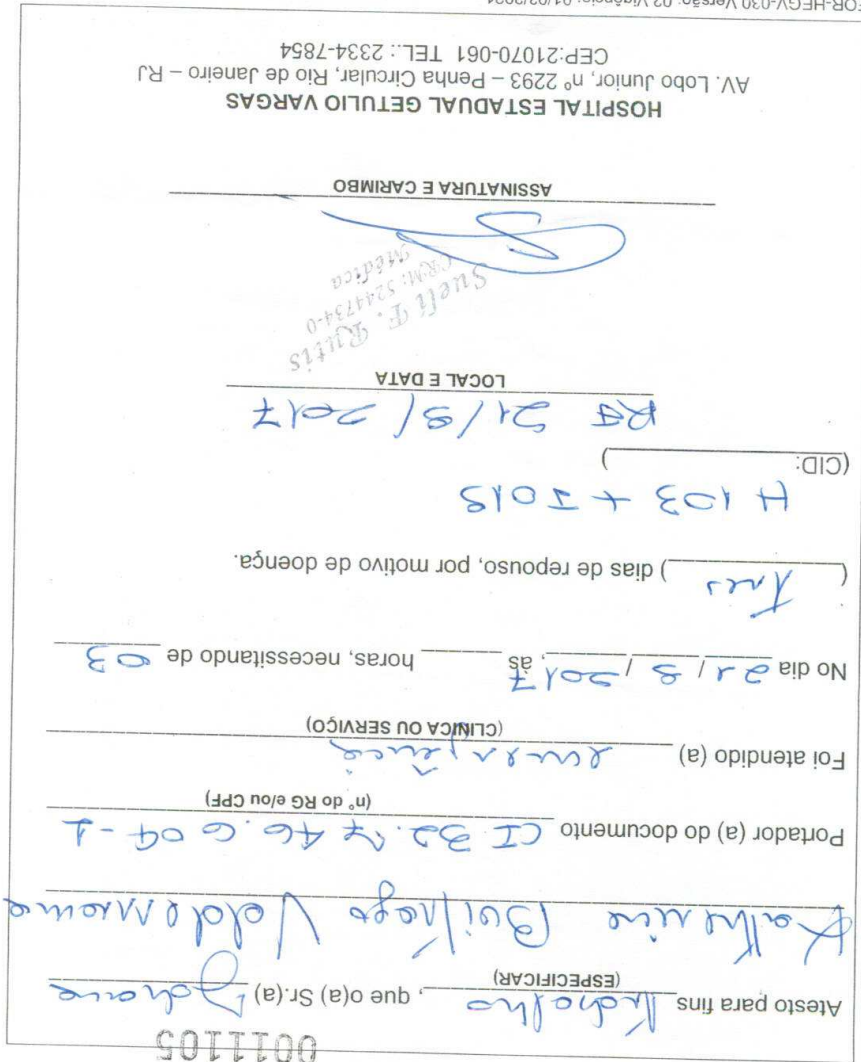 0011105
Atesto para fins trabalho, que o(a) Sr.(a)
(ESPECIFICAR)
Katherine Buitrago Valderrama
Portador (a) do documento CI 32.746.604-1
(nº do RG e/ou CPF)
Foi atendido (a) emergência
(CLINICA OU SERVIÇO)
No dia 21/8/2017, às horas, necessitando de 03
(Três) dias de repouso, por motivo de doença.
H103 + J019
(CID: )
RJ 21/8/2017
LOCAL E DATA
Sueli F. Rutis
CRM: 5244734-0
Médica
ASSINATURA E CARIMBO
HOSPITAL ESTADUAL GETULIO VARGAS
AV. Lobo Junior, nº 2293 – Penha Circular, Rio de Janeiro – RJ
CEP:21070-061 TEL.: 2334-7854